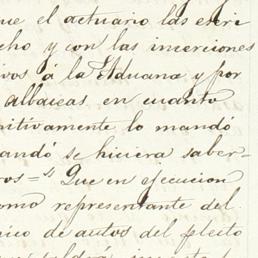 ue el actuario las escri
cho y con las inserciones
ivos á la Aduana y por
albaceas en cuanto
initivamente lo mandó
andó se hiciera saber-
ros= Que en ejecucion
omo representante del
nico de autos del pleito